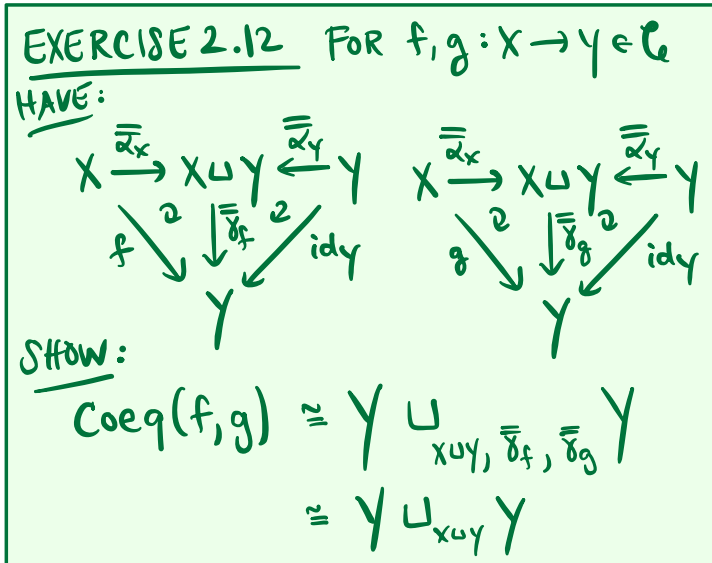 EXERCISE 2.12 FOR f, g : X → Y ∈ 𝒞
HAVE:
X →(α̿_X) X⊔Y ←(α̿_Y) Y X →(α̿_X) X⊔Y ←(α̿_Y) Y
f γ̿_f id_Y g γ̿_g id_Y
Y Y
SHOW:
Coeq(f,g) ≅ Y ⊔_{X⊔Y, γ̿_f, γ̿_g} Y
≅ Y ⊔_{X⊔Y} Y